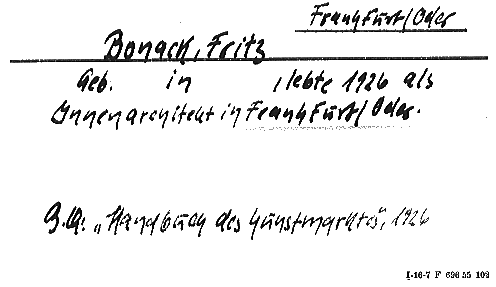 Frankfurt/Oder
Bonack, Fritz
Geb. in , lebte 1926 als
Innenarchitekt in Frankfurt/Oder.
Z.A: „Handbuch des Kunstmarktes", 1926
I-16-7 F 696 55 109